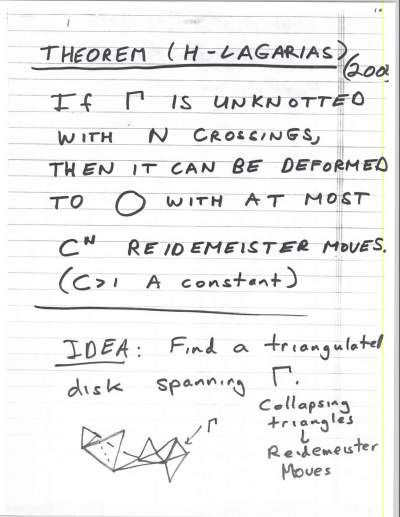 THEOREM (H-LAGARIAS)
(200
If Γ IS UNKNOTTED
WITH N CROSSINGS,
THEN IT CAN BE DEFORMED
TO O WITH AT MOST
C^N REIDEMEISTER MOVES.
(C>1 A constant)
IDEA: Find a triangulated
disk spanning Γ.
Collapsing
triangles
↓
Reidemeister
Moves
Γ